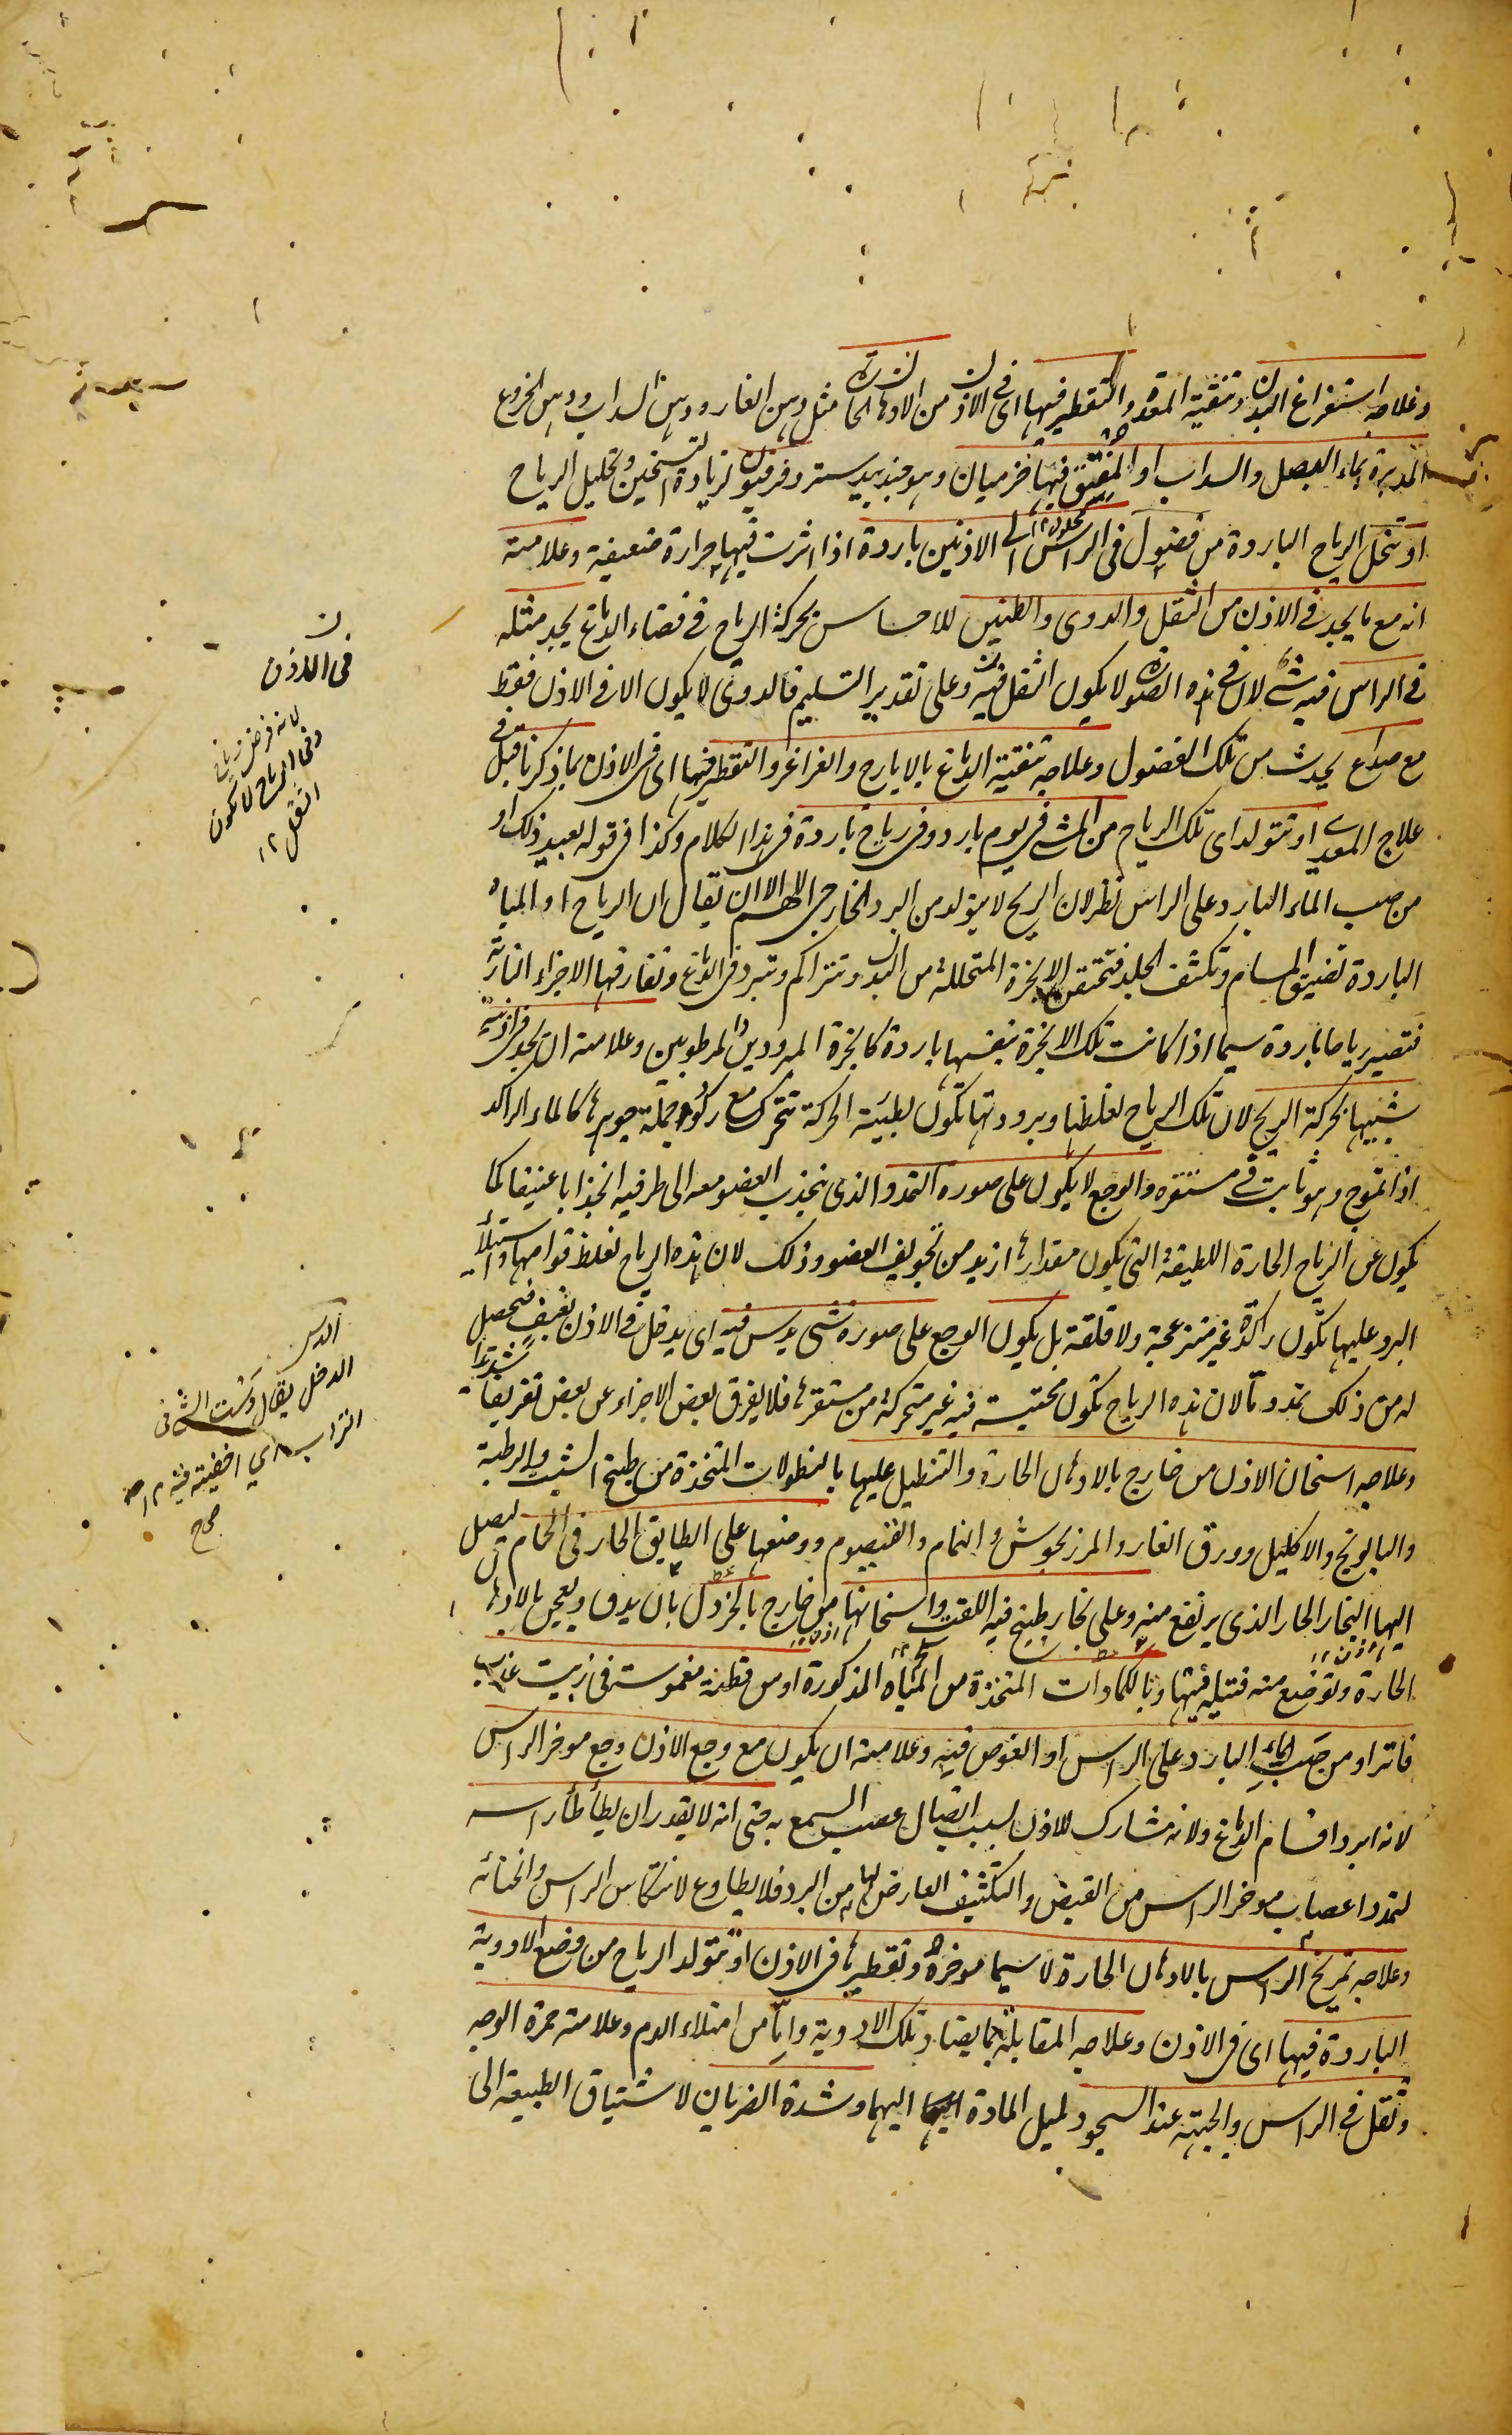 وعلاجه استفراغ البدن وتنقية المعدة والتقطير فيها اى فى الاذن من الادهان الحارة مثل دهن الغار ودهن السداب ودهن الخروع
المدبرة بماء البصل والسداب او المفتق فيها خزميان وهو جندبيدستر وفرفيون لزيادة التسخين وتحليل الرياح
او تتحلل الرياح الباردة من فضول فى الراس الى الاذنين باردة اذا اثرت فيها حرارة ضعيفة وعلامته
انه مع ما يجد فى الاذن من الثقل والدوى والطنين للاحساس بحركة الرياح فى فضاء الدماغ يجد مثله
فى الراس فيه شئ لان فى هذه الصورة لا يكون الثقل فيه وعلى تقدير التسليم فالدوى لا يكون الا فى الاذن فقط
مع صداع يحدث من تلك الفضول وعلاجه تنقية الدماغ بالايارج والغراغر والتقطير فيها اى فى الاذن بما ذكرنا قبل فى
علاج المعدى او تتولد اى تلك الرياح من المشى فى يوم بارد وفى رياح باردة فى هذا الكلام وكذا فى قوله بعيد ذلك او
من صب الماء البارد على الراس نظر لان الريح لا يتولد من البرد الخارجى اللهم الا ان يقال ان الرياح او المياه
الباردة تضيق المسام وتكثف الجلد فتحتقن الابخرة المتحللة من البدن وتتراكم وتبرد فى الدماغ وتفارقها الاجزاء النارية
فتصير رياحا باردة سيما اذا كانت تلك الابخرة بنفسها باردة كابخرة المبرودين والمرطوبين وعلامته ان يجد فى اذنيه
شبيها بحركة الريح لان تلك الرياح لغلظها وبرودتها تكون بطيئة الحركة تتحرك مع ركود جملة جوهرها كالماء الراكد
اذا تموج وهو ثابت فى مستقره والوجع لا يكون على صورة التمدد الذى ينجذب العضو معه الى طرفيه انجذابا عنيفا كما
يكون عن الرياح الحارة اللطيفة التى يكون مقدارها ازيد من تجويف العضو وذلك لان هذه الرياح لغلظ قوامها واستيلاء
البرد عليها تكون راكدة غير منزعجة ولا قلقة بل يكون الوجع على صورة شئ يدس فيه اى يدخل فى الاذن بعنف فتحصل
له من ذلك تمدد ما لان هذه الرياح تكون محتبسة فيه غير متحركة من مستقرها فلا يفرق بعض الاجزاء عن بعض تفريقا شديدا
وعلاجه اسخان الاذن من خارج بالادهان الحارة والتنطيل عليها بالنطولات المتخذة من طبيخ الشبت والرطبة
والبابونج والاكليل وورق الغار والمرزنجوش والنمام والقيصوم ووضعها على الطابق الحار فى الحمام ليصل
اليها البخار الحار الذى يرتفع منه وعلى بخار طبيخ فيه اللفت واسخانها من خارج بالخردل بان يدق ويعجن بالادهان
الحارة وتوضع منه فتيلة فيها وبالكمادات المتخذة من المياه المذكورة او من قطنة مغموسة فى زيت عذب
فاتر او من صب الماء البارد على الراس او الغوص فيه وعلامته ان يكون مع وجع الاذن وجع موخر الراس
لانه ابرد اقسام الدماغ ولانه مشارك للاذن بسبب اتصال عصب السمع به حتى انه لا يقدر ان يطأطأ راسه
لتمدد اعصاب موخر الراس من القبض والتكثيف العارض لها من البرد فلا يطاوع لانتكاس الراس وانحنائه
وعلاجه تمريخ الراس بالادهان الحارة لا سيما موخره وتقطيرها فى الاذن او تتولد الرياح من وضع الادوية
الباردة فيها اى فى الاذن وعلاجه المقابلة بما يضاد تلك الادوية واما من امتلاء الدم وعلامته حمرة الوجه
وثقل فى الراس والجبهة عند السجود لميل المادة اليهما وشدة الضربان لاشتياق الطبيعة الى
فى الاذن
لانه فرض
وفى الرياح لا يكون
الثقل ١٢
الدس
الدخل يقال دسست الشئ فى
التراب اى اخفيته فيه ١٢ ص